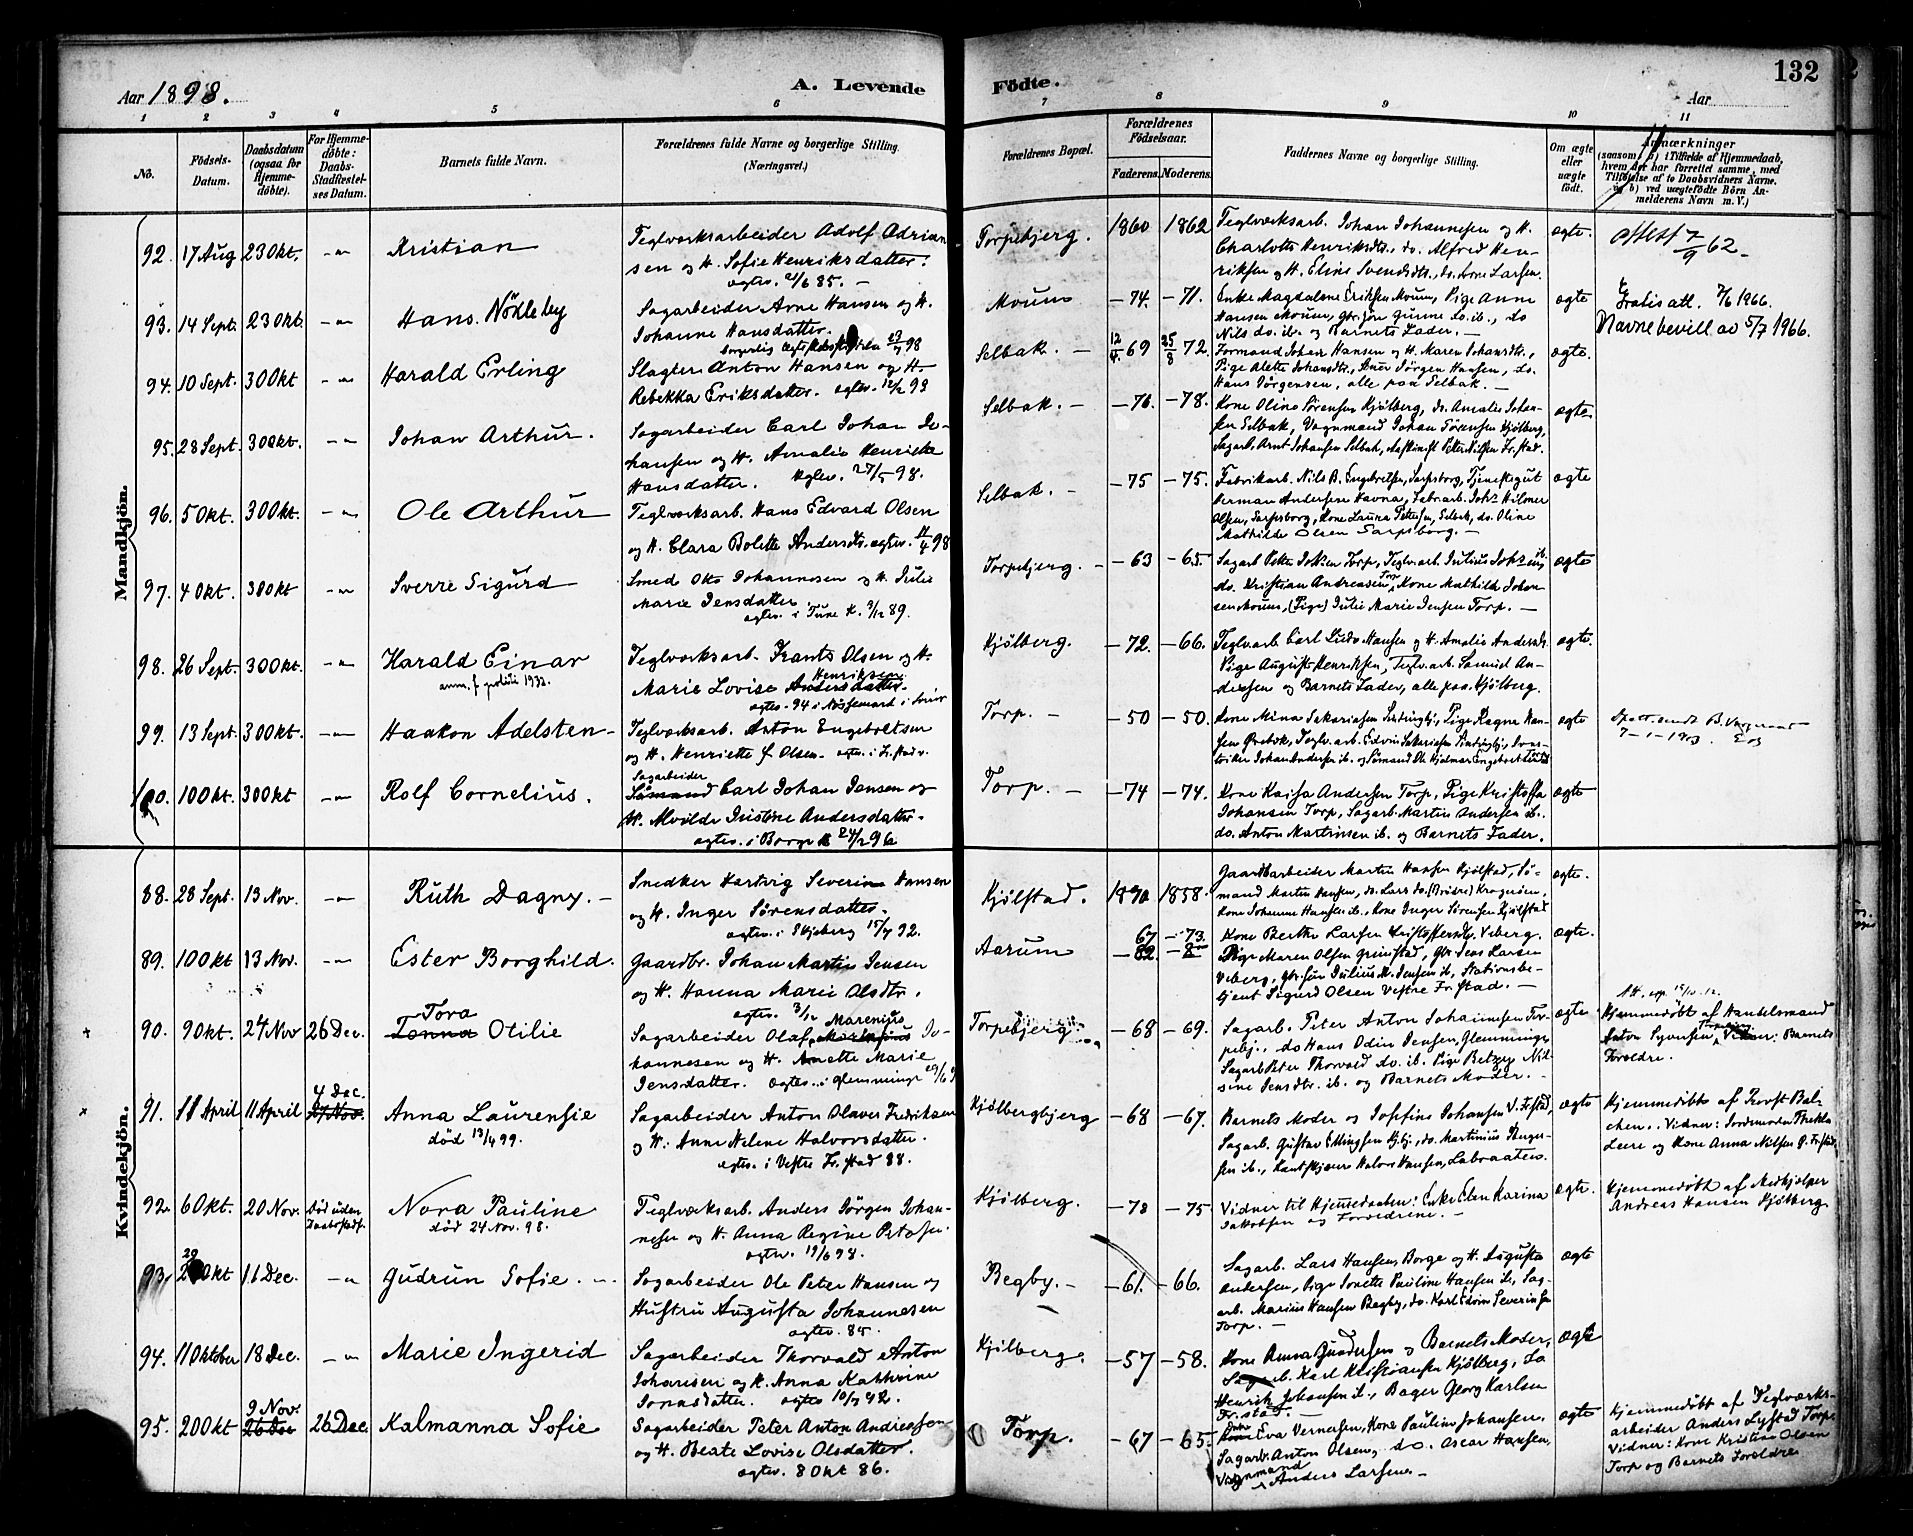 Aar 1898.
A. Levende
Fødte.
132
Aar
1 2 3 4 5 6 7 8 9 10 11
No.
Fødsels-Datum.
Daabsdatum (ogsaa for Hjemmedøbte).
For Hjemmedøbte: Daabs-Stadfæstelses Datum.
Barnets fulde Navn.
Forældrenes fulde Navne og borgerlige Stilling. (Næringsvei.)
Forældrenes Bopæl.
Forældrenes Fødselsaar.
Faderens. Moderens.
Faddernes Navne og borgerlige Stilling.
Om ægte eller uægte født.
Anmærkninger
(saasom a) i Tilfælde af Hjemmedaab, hvem der har forrettet samme, med Tilføielse af to Daabsvidners Navne. og b) ved uægtefødte Børn Anmelderens Navn m. V.)
Mandkjön.
92. 17 Aug 23 Okt. -"- Kristian
Teglværksarbeider Adolf Adriansen og H. Sofie Henriksdatter.
ægtev. 21/6 85. -
Torpebjerg. 1860 1862
Teglværksarb. Johan Johannesen og H.
Charlotte Henriksdtr., do. Alfred Henriksen og H. Eline Svendsdtr., do. Arne Larsen.
ægte. Attest 7/9 62
93. 14 Sept. 23 Okt. -"- Hans. Nökleby
Sagarbeider Arne Hansen og H.
Johanne Hansdatter.
Moum -74. -71.
Enke Magdalene Eriksen Moum, Pige Anne
Hansen Moum, Gbr. Jon Gunne do. ib., do
Nils do. ib. og Barnets Fader. -
ægte Gratis att. 7/6 1966.
Navnebevill av 5/7 1966.
94. 10 Sept. 30 Okt -"- Harald Erling
Slagter Anton Hansen og H.
Rebekka Eriksdatter. ægtev. 12/2 93
Selbak. - 12/4 69 25/8 72.
Formand Johan Hansen og H. Maren Johansdtr.,
Pige Alette Johansdtr., Jørgen Hansen, do.
Hans Jörgensen, alle paa Selbak. -
ægte.
95. 28 Sept. 30 Okt. -"- Johan Arthur.
Sagarbeider Carl Johan Johansen og H. Amalie Henriette
Hansdatter. ægtev. 27/5 98.
Selbak. - -76. -78.
Kone Oline Sørensen Kjølberg, do. Amalie Johansen Selbak, Vognmand Johan Sørensen Kjølberg,
Sagarb. Arnt Johansen Selbak, Maskinist Peter Nilsen Fr.stad.
ægte.
96. 5 Okt. 30 Okt. -"- Ole Arthur
Teglværksarb. Hans Edvard Olsen
og H. Clara Bolette Andersdtr. ægtev. 11/4 98
Selbak. - -75 -75.
Fabrikarb. Nils B. Engebretsen, Sarpsborg, Tjenestegut
Herman Andersen Havna, Fabr.arb. Johs Hilmer
Olsen, Sarpsborg, Kone Laura Petersen, Selbak, do. Oline
Mathilde Olsen Sarpsborg. -
ægte
97. 4 Okt. 30 Okt -"- Sverre Sigurd
Smed Otto Johannesen og H. Julie
Marie Jensdatter.
ægtev. i Tune K. 3/12 89.
Torpebjerg. - -63 -65.
do. Kristian Andreasen, Kone Mathilde Johansen Moum, (Pige) Julie Marie Jensen Torp. -
ægte
98. 26 Sept. 30 Okt. -"- Harald Einar
anm. f. politi 1932.
Teglværksarb. Frants Olsen og H.
Marie Lovise Andersdatter. Henriksen
Kjølberg. -72. -66.
Teglv.arb. Carl Ludv. Hansen og H. Amalie Andersdtr.
Pige Auguste Henriksen, Teglv.arb. Samuel Andersen og Barnets Fader, alle paa Kjølberg.
ægte.
99. 13 Sept. 30 Okt. -"- Haakon Adelsten -
Teglværksarb. Anton Engebretsen
og H. Henriette f. Olsen. ægtev. i Fr.stad
Torp. - -50 -50.
Kone Mina Sakariasen, Pige Ragna Hansen
ægte
7-1-1903.
100. 10 Okt. 30 Okt -"- Rolf Cornelius.
Sagarbeider
Sømand Carl Johan Jensen og
H. Alvilde Justine Andersdatter.
ægtev. i Borge K 24/2 96
Torp. - -74 -74.
Kone Kaisa Andersen Torp, Pige Kristoffa
Johansen Torp, Sagarb. Martin Andersen ib.
do. Anton Martinsen ib. og Barnets Fader.
ægte
Kvindekjön.
88. 28 Sept. 13 Nov. -"- Ruth Dagny. -
Snedker Hartvig Severin Hansen
og H. Inger Sørensdatter.
ægtev. i Skjeberg 15/7 92.
Kjølstad. 1870 1858.
Gaardarbeider Martin Hansen Kjølstad, Sømand Martin Hansen, do. Lars do. (Brødre) Kragerøen,
Kone Johanne Hansen ib., Kone Inger Sørensen Kjølstad
ægte.
89. 10 Okt 13 Nov. -"- Ester Borghild.
Gaardbr. Johan Martin Jensen
og H. Hanna Marie Olsdtr.
ægtev. 3/12
Aarum 67 -73.
Kone Berthe Larsen Kristoffersdtr. Veberg.
Pige Maren Olsen Grimstad, Gbr. Jens Larsen
Veberg, Gbr. søn Julius M. Jensen ib, Stationsbetjent Sigurd Olsen Vestre Fr.stad. -
ægte.
+ 90. 9 Okt. 27 Nov 26 Dec. Tora
Tonna Otilie
Sagarbeider Olaf Marenius Johannesen og H. Anette Marie
Jensdatter. ægtev. i Glemminge
Torpebjerg. -68 -69.
Sagarb. Peter Anton Johannesen Torpebj., do Hans Odin Jensen, Glemminge,
Sagarb. Peter Thorvald do. ib. Pige Betzy Nilsine Jensdtr. ib. og Barnets Moder. -
ægte
Hjemmedøbt af Handelsmand
Anton Syversen Vidner: Barnets
Forældre.
x 91. 11 April 11 April 4 Dec. 27 Nov. Anna Laurensie
død 13/4 99.
Sagarbeider Anton Olaves Fredriksen
og H. Anne Helene Halvorsdatter.
ægtev. i Vestre Fr.stad 88.
Kjølbergbjerg -68 -67.
Barnets Moder og Josefine Johansen V. Fr.stad,
ægte
Hjemmedøbt af Provst Balchen. Vidner: Jordemoder Thekla
Leere og Kone Anna Nilsen Ø. Fr.stad
92. 6 Okt. 20 Nov. Død uden Daabsstadf.
Nora Pauline
død 24 Nov. 98.
Teglværksarb. Anders Jörgen Johannesen og H. Anna Regine
ægtev. 19/6 98.
Kjølberg. -78 -75
Vidner til Hjemmedaaben: Enke Elen Karina
Jakobsen og Forældrene. -
ægte.
Hjemmedøbt af Medhjælper
Andreas Hansen Kjølberg
93. 29 Okt 11 Dec. -"- Gudrun Sofie.
Sagarbeider Ole Peter Hansen og
Hustru Augusta Johannesen
ægtev. 85.
Begby. - -61. -66.
Sagarb. Lars Hansen, Borge og H. Augusta
Andersen, Pige Josette Pauline Hansen ib., Sagarb. Marius Hansen Begby, do. Karl Edvin Severinsen
Torp. -
ægte
94. 11 Oktober 18 Dec. -"- Marie Ingerid
Sagarbeider Thorvald Anton
Johansen og H. Anna Kathrine
Jonasdatter. ægtev 10/7 92.
Kjølberg. -57 -58.
Kone Anna Gundersen og Barnets Moder,
Sagarb. Karl Kristiansen Kjølberg, do
Henrik Johansen ib., Bager Georg Karlsen
Fr.stad. -
ægte
95. 20 Okt 9 Nov. 26 Dec 26 Dec. Kalmanna Sofie
Sagarbeider Peter Anton Andreassen
og H. Beate Lovise Olsdatter.
ægtev. 8 Okt 86.
Torp. -67 -65.
Eva Vernersen, Kone Pauline Johansen,
Sagarb. Anton Olsen, do. Oscar Hansen,
Vognmand Anders Larsen. -
ægte
Hjemmedøbt af Teglværksarbeider Anders Lystad Torp.
Vidner: Kone Kristine Olsen
Torp og Barnets Forældre